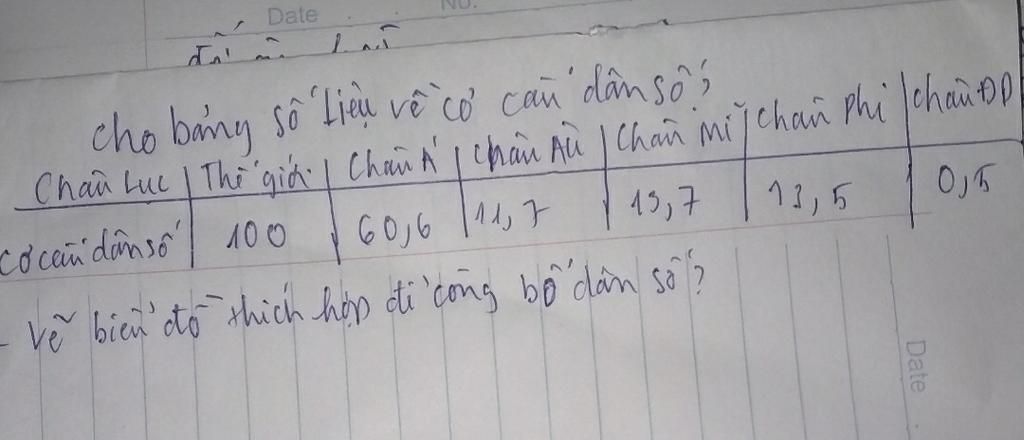 Date No.
cho bảng số liệu về cơ cấu dân số?
Châu Lục | Thế giới | Châu Á | Châu Âu | Châu Mĩ | Châu Phi | Châu ĐD
Cơ cấu dân số | 100 | 60,6 | 11,7 | 13,7 | 13,5 | 0,5
- Vẽ biểu đồ thích hợp để công bố dân số?
Date